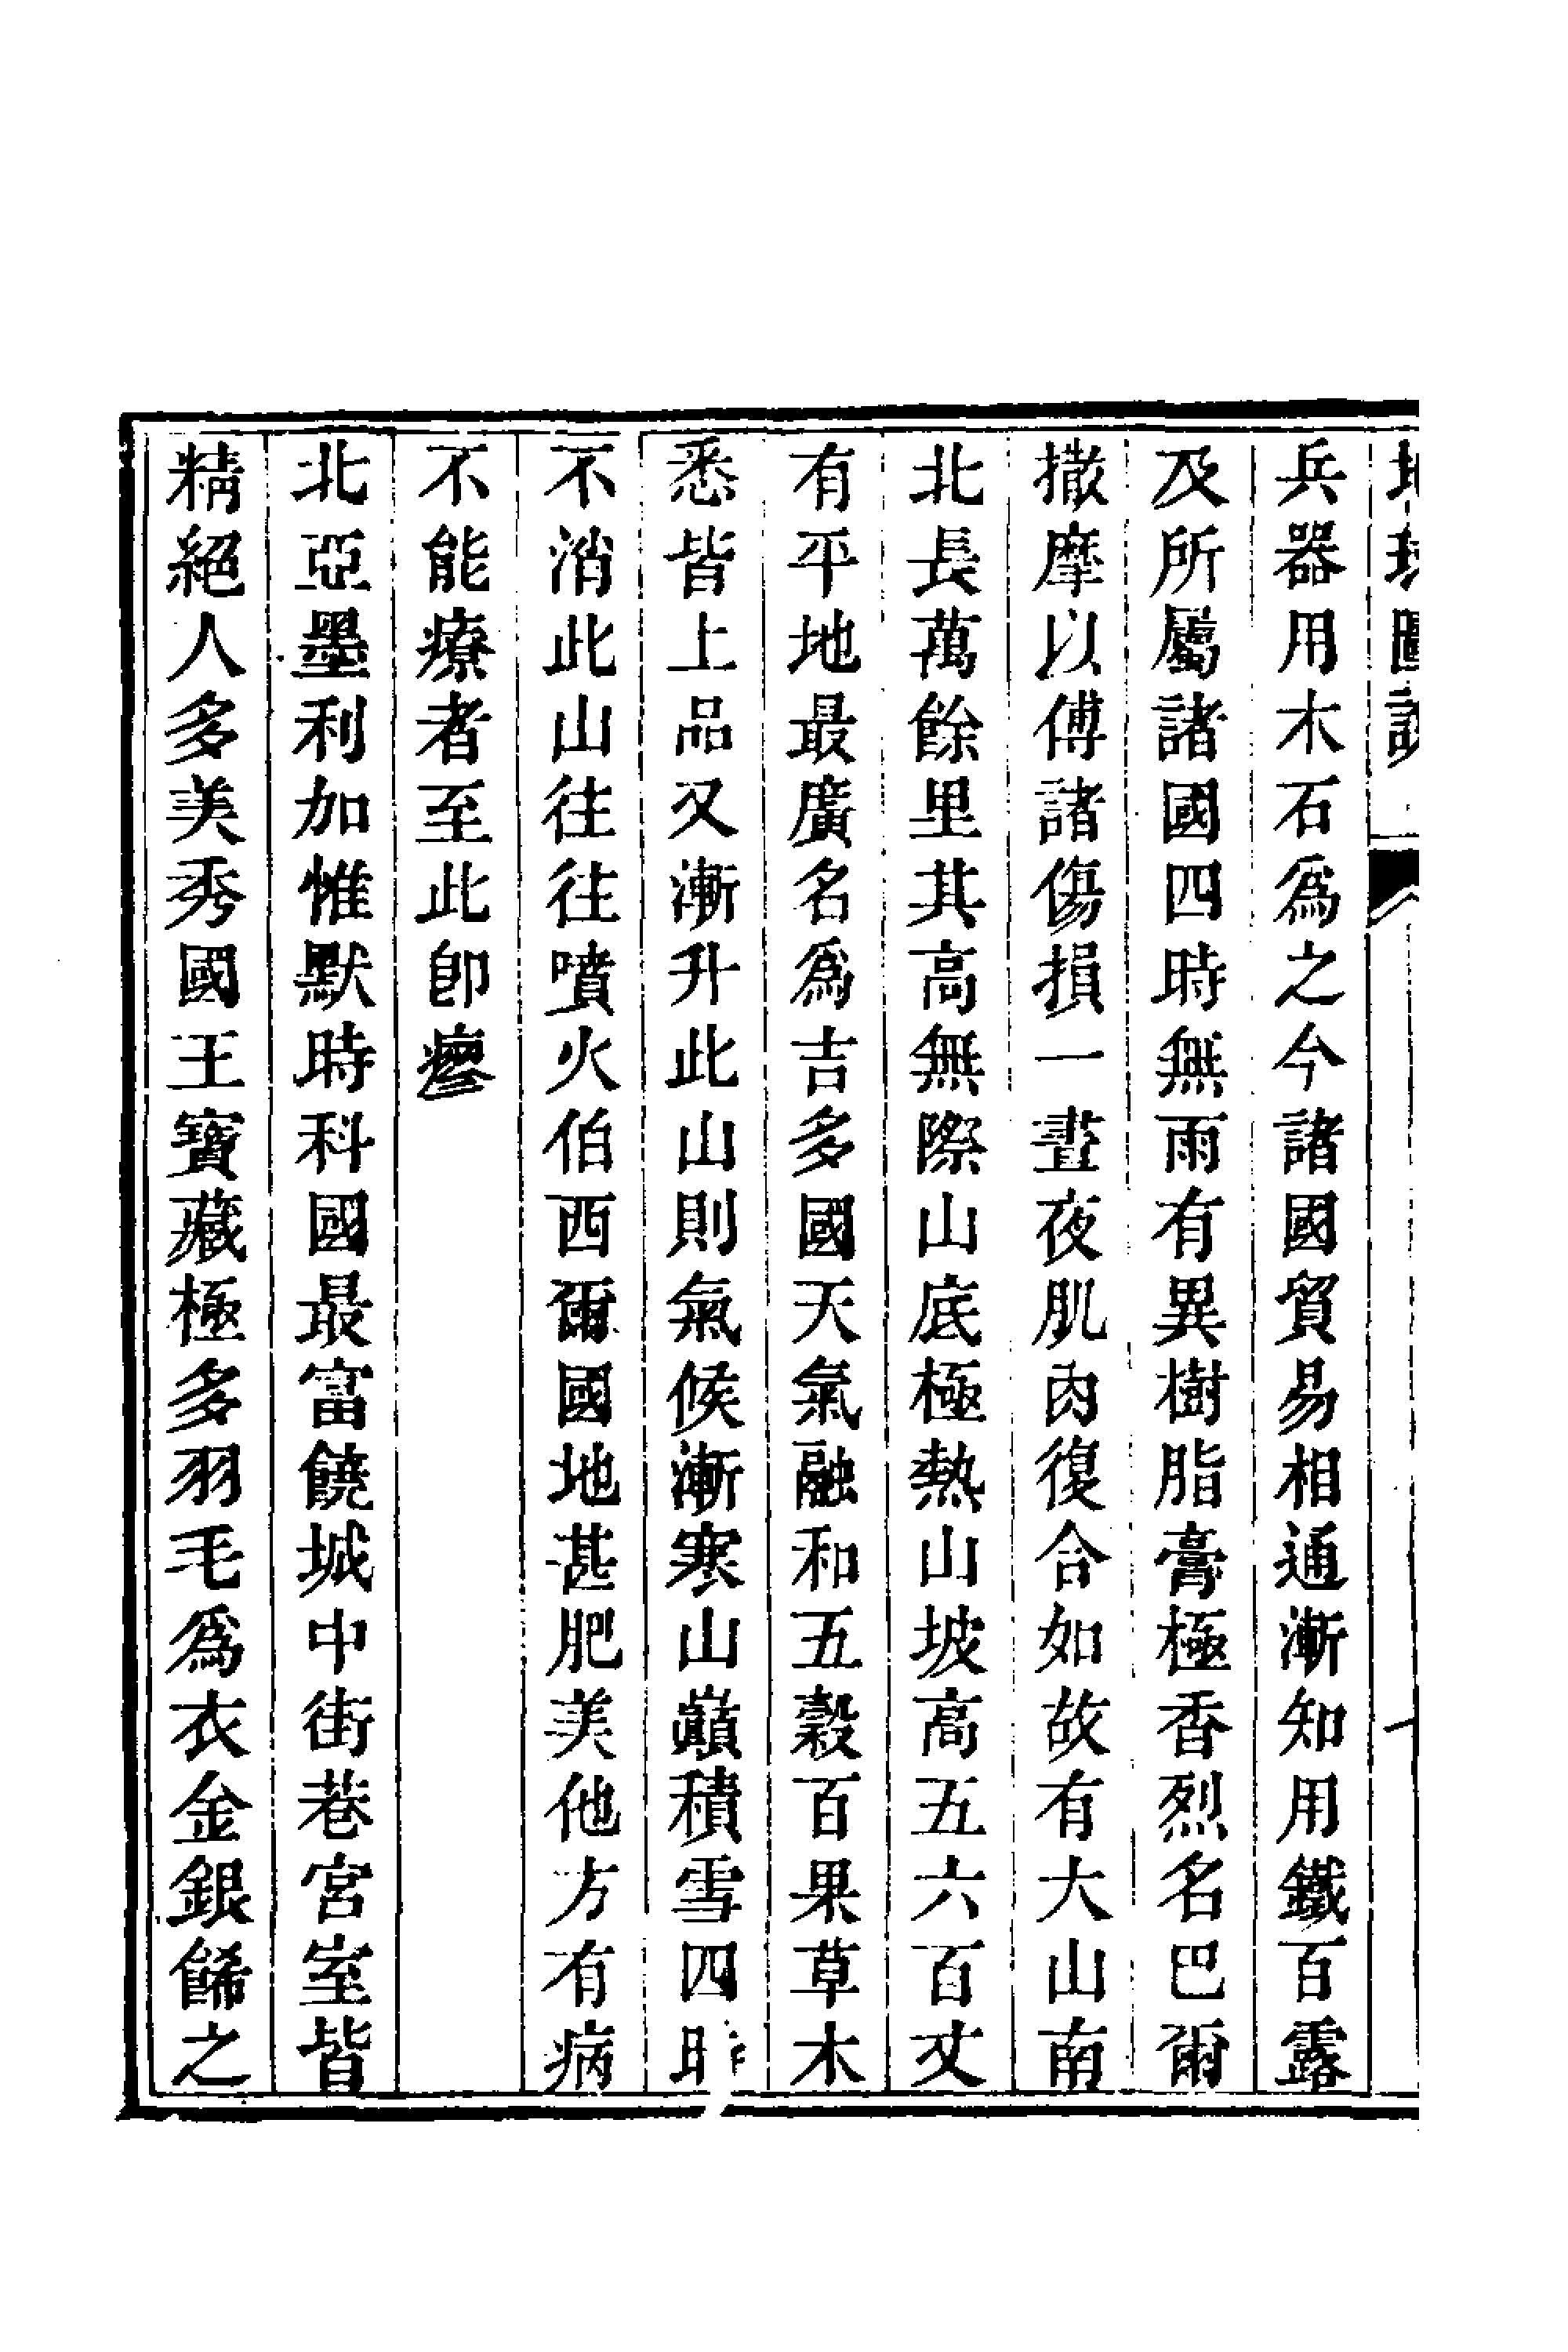 地球圖說
兵器用木石爲之今諸國貿易相通漸知用鐵百露
及所屬諸國四時無雨有異樹脂膏極香烈名巴爾
撒摩以傅諸傷損一晝夜肌肉復合如故有大山南
北長萬餘里其高無際山底極熱山坡高五六百丈
有平地最廣名爲吉多國天氣融和五穀百果草木
悉皆上品又漸升此山則氣候漸寒山巔積雪四時
不消此山往往噴火伯西爾國地甚肥美他方有病
不能療者至此卽瘳
北亞墨利加惟默時科國最富饒城中街巷宮室皆
精絕人多美秀國王寶藏極多羽毛爲衣金銀餙之